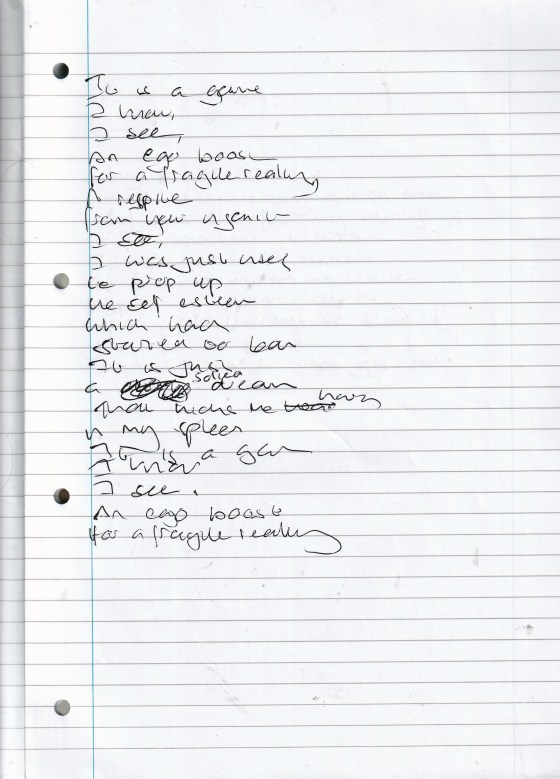 It is a game
I know,
I see,
An ego boost
for a fragile reality
A respite
from your
I see,
I was just used
to prop up
the self esteem
which had
started so low
It is just
a dream
that me
in my spleen
It is a game
I know
I see.
An ego boost
for a fragile reality